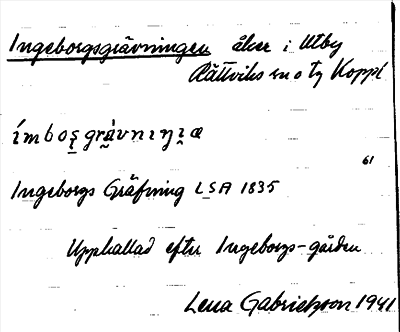 Ingeborgsgrävningen åker i Utby
Rättviks sn o tg Koppl
ímbos̠gràvnıŋı̯æ
61
Ingeborgs Gräfning LSA 1835
Uppkallad efter Ingeborgs-gården
Lena Gabrielsson 1941